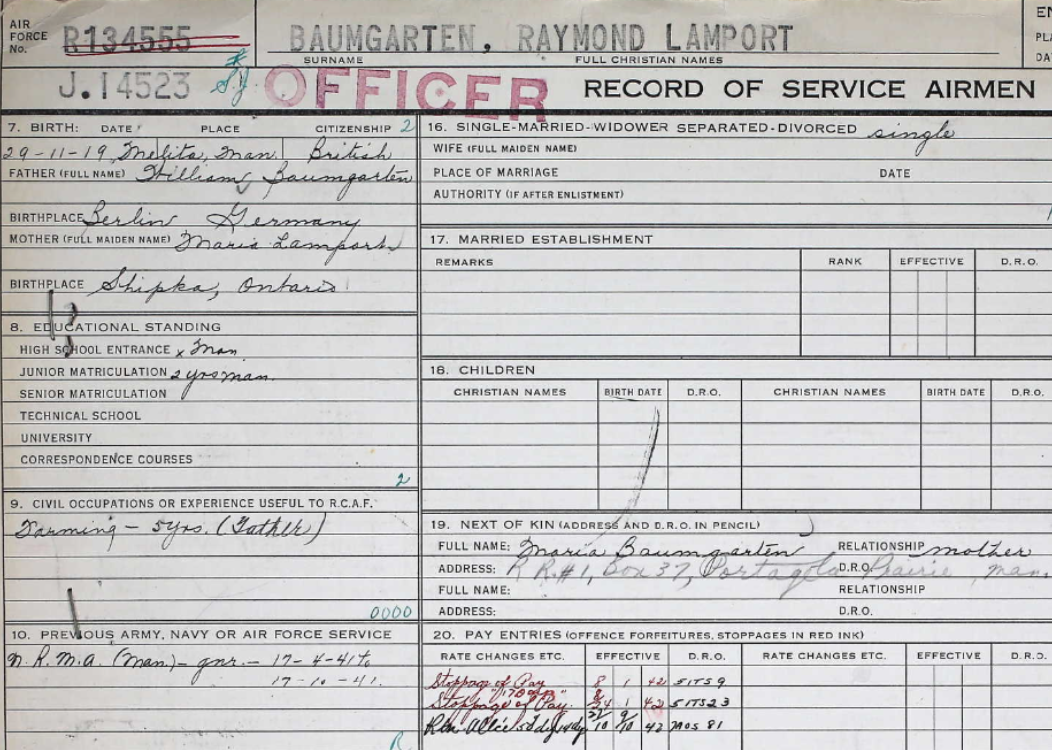 AIR FORCE No. R134555 BAUMGARTEN, RAYMOND LAMPORT EN
SURNAME FULL CHRISTIAN NAMES PLA
DA
J.14523 OFFICER RECORD OF SERVICE AIRMEN
7. BIRTH: DATE PLACE CITIZENSHIP 2
29-11-19 Melita, Man. British
FATHER (FULL NAME) William Baumgarten
BIRTHPLACE Berlin Germany
MOTHER (FULL MAIDEN NAME) Maria Lamport
BIRTHPLACE Shipka, Ontario
8. EDUCATIONAL STANDING
HIGH SCHOOL ENTRANCE x Man
JUNIOR MATRICULATION 2 yrs man.
SENIOR MATRICULATION
TECHNICAL SCHOOL
UNIVERSITY
CORRESPONDENCE COURSES
2
9. CIVIL OCCUPATIONS OR EXPERIENCE USEFUL TO R.C.A.F.
Farming - 5yrs. (Father)
0000
10. PREVIOUS ARMY, NAVY OR AIR FORCE SERVICE
N.R.M.A. (Man.) - gnr. - 17-4-41 to
17-10-41.
R
16. SINGLE-MARRIED-WIDOWER SEPARATED-DIVORCED single
WIFE (FULL MAIDEN NAME)
PLACE OF MARRIAGE DATE
AUTHORITY (IF AFTER ENLISTMENT)
17. MARRIED ESTABLISHMENT
REMARKS RANK EFFECTIVE D.R.O.
18. CHILDREN
CHRISTIAN NAMES BIRTH DATE D.R.O. CHRISTIAN NAMES BIRTH DATE D.R.O.
19. NEXT OF KIN (ADDRESS AND D.R.O. IN PENCIL)
FULL NAME: Maria Baumgarten RELATIONSHIP mother
ADDRESS: R R.#1, Box 37, Portage la Prairie, Man. D.R.O.
FULL NAME: RELATIONSHIP
ADDRESS: D.R.O.
20. PAY ENTRIES (OFFENCE FORFEITURES, STOPPAGES IN RED INK)
RATE CHANGES ETC. EFFECTIVE D.R.O. RATE CHANGES ETC. EFFECTIVE D.R.O.
Stoppage of Pay 8 1 42 5ITS9
Stoppage of Pay 1 42 5ITS23
10 10 42 81